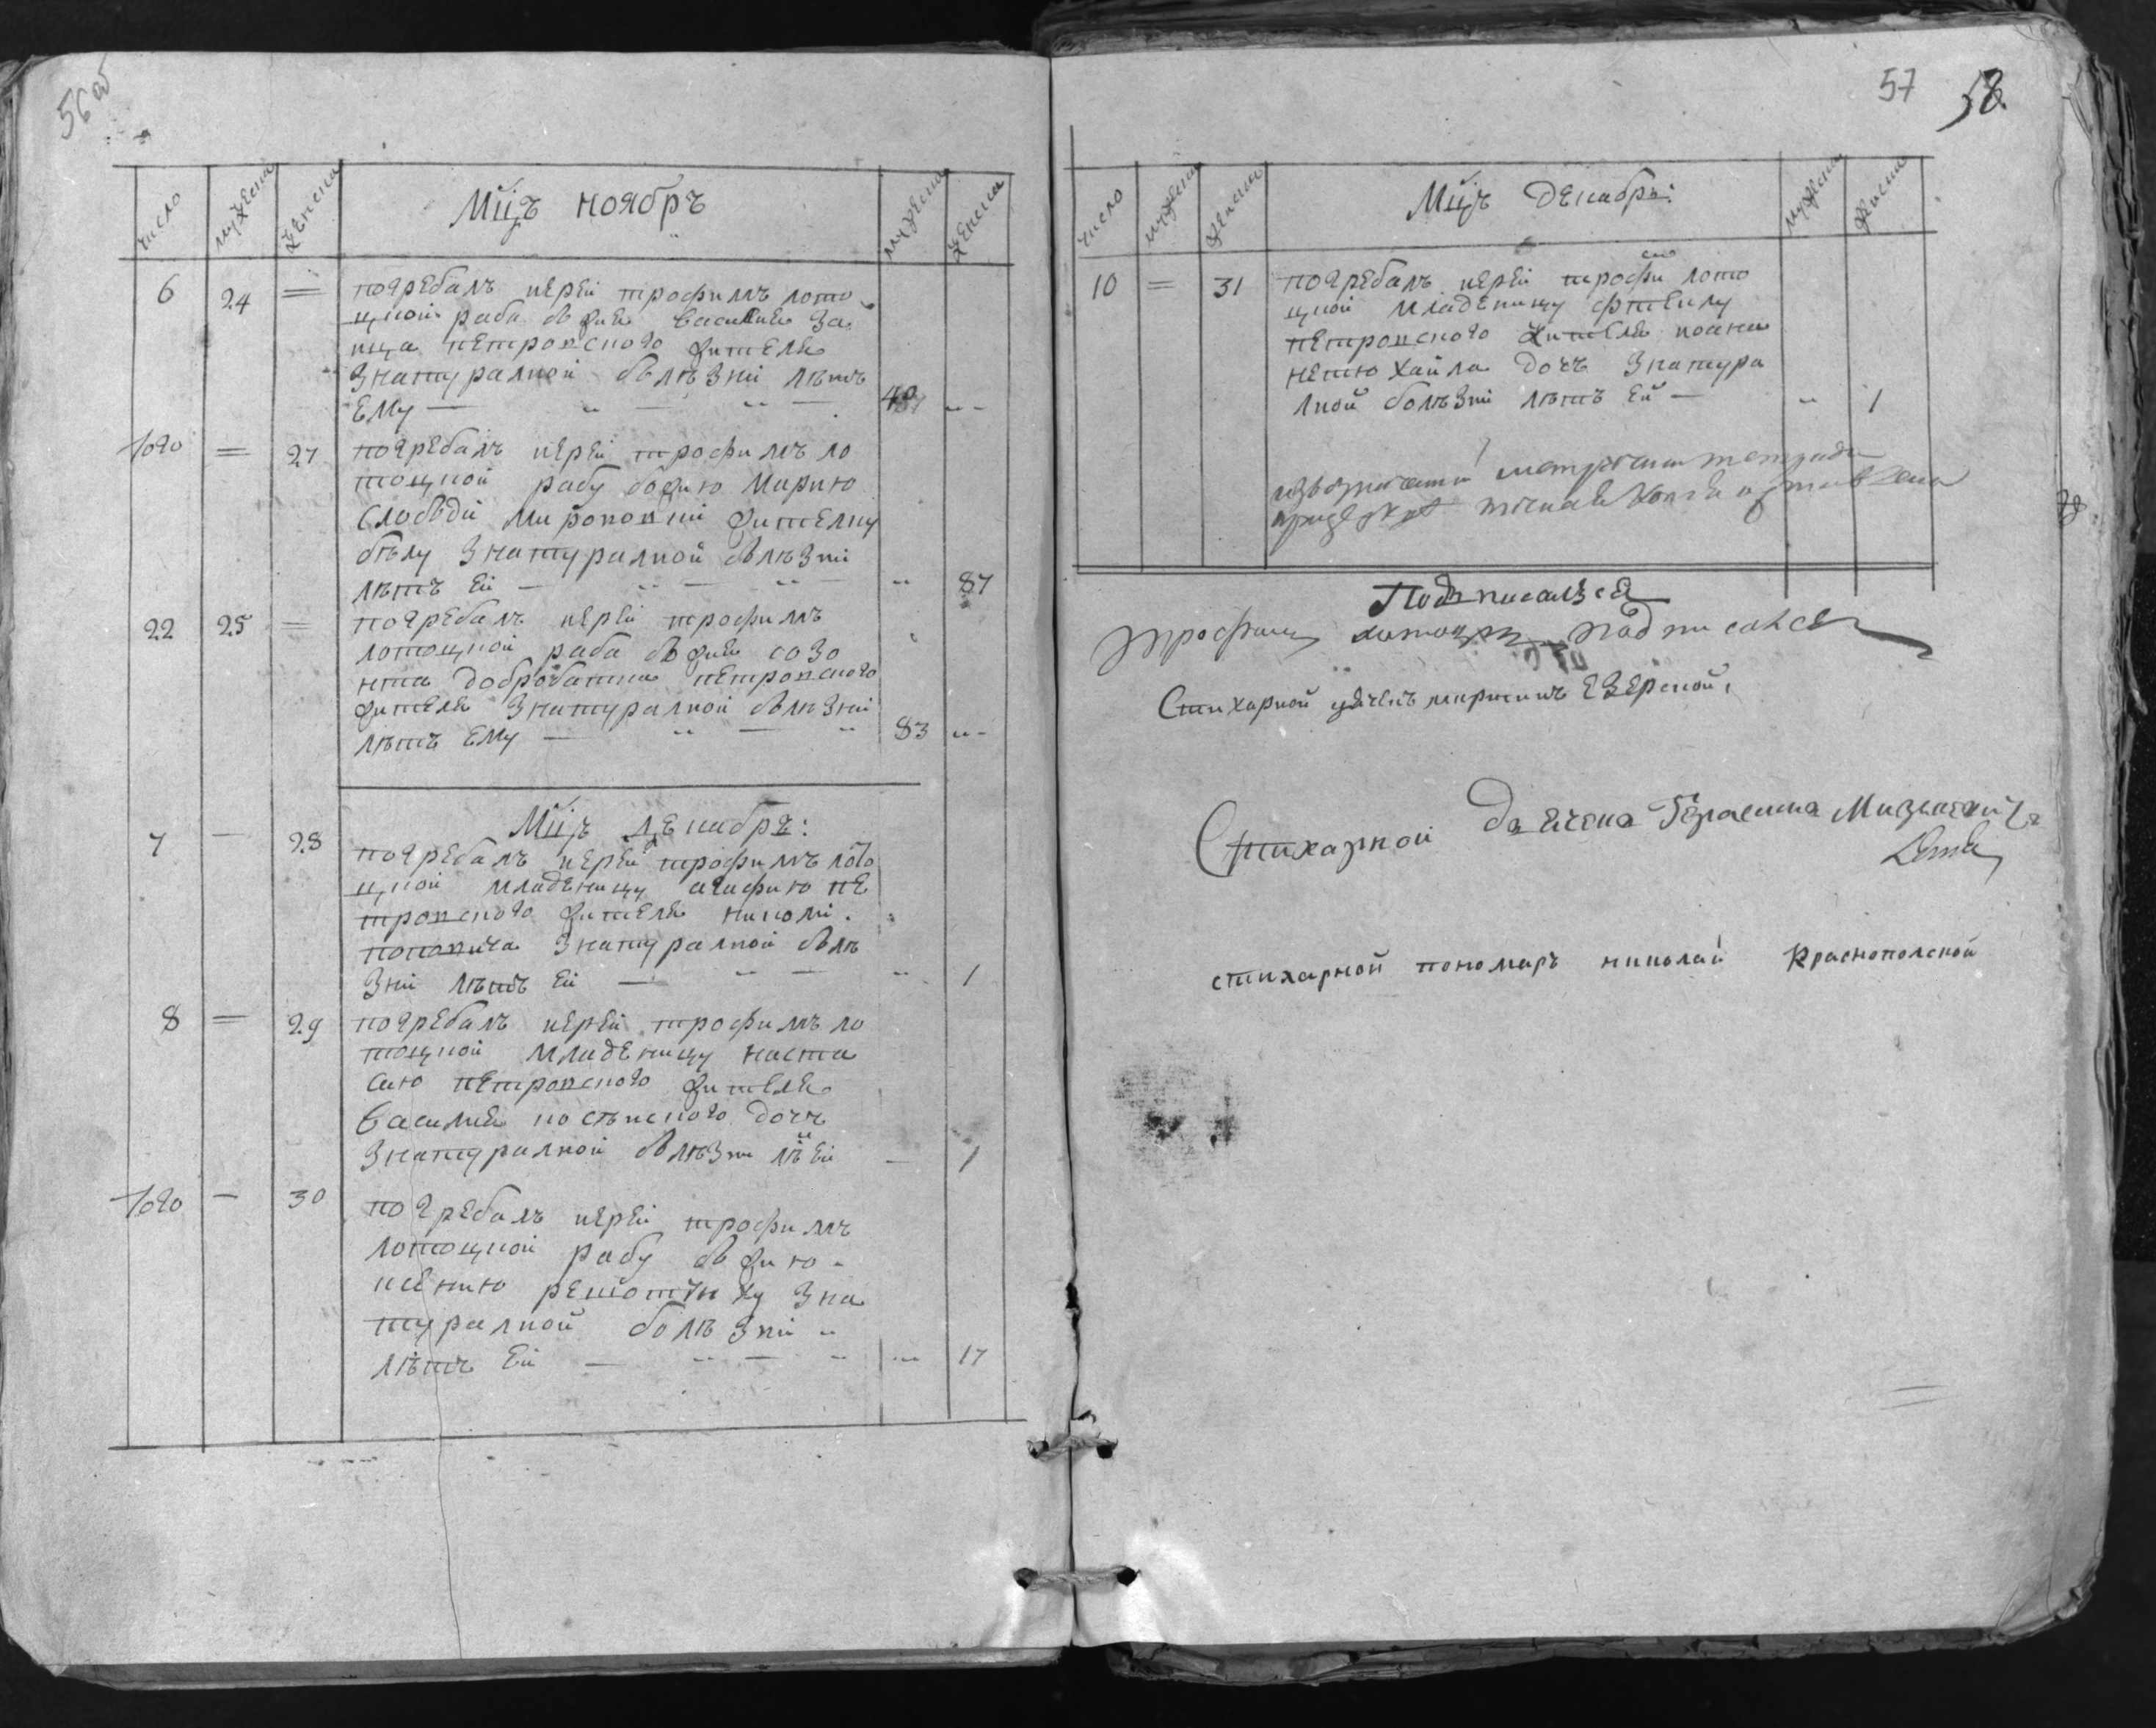 56 об
число мужеска женска Мцъ ноябрь мужеска женска
6 24 = погребалъ иерей трофимъ лото
цкой раба божия василия за
йца петровского жителя
знатуралной болѣзни лѣтъ
ему — 40 --
того = 27 погребалъ иерей трофимъ ло
тоцкой рабу божию Марию
слободи мироновки жителку
бѣлу знатуралной болѣзни
лѣтъ ей — 87
22 25 = погребалъ иерей трофимъ
лотоцкой раба божия созо
нта добробатка петровского
жителя знатуралной болѣзни
лѣтъ ему — 83 --
Мцъ декабрь:
7 — 28 погребалъ иерей трофимъ лото
цкой младеницу агафию пе
тровского жителя николи
поповича знатуралной болѣ
зни лѣтъ ей — 1
8 = 29 погребалъ иерей трофимъ ло
тоцкой младеницу наста
сию петровского жителя
василия дочь
знатуралной болѣзни лѣ ей — 1
того — 30 погребалъ иерей трофимъ
лотоцкой рабу божию
ксению знa
туралной болѣзни
лѣтъ ей — 17
57 58.
число мужеска женска Мцъ Декабрь: мужеска женска
10 = 31 погребалъ иерей трофи лото
цкой младеницу
петровского жителя
хайла дочь знатура
лной болѣзни лѣтъ ей — 1
метрични тетради
Подписался
трофим лотоцки подписался
Стихарной дячекъ мартинъ Езерской,
Стихарной дячека Герасима
стихарной пономаръ николай Краснополской